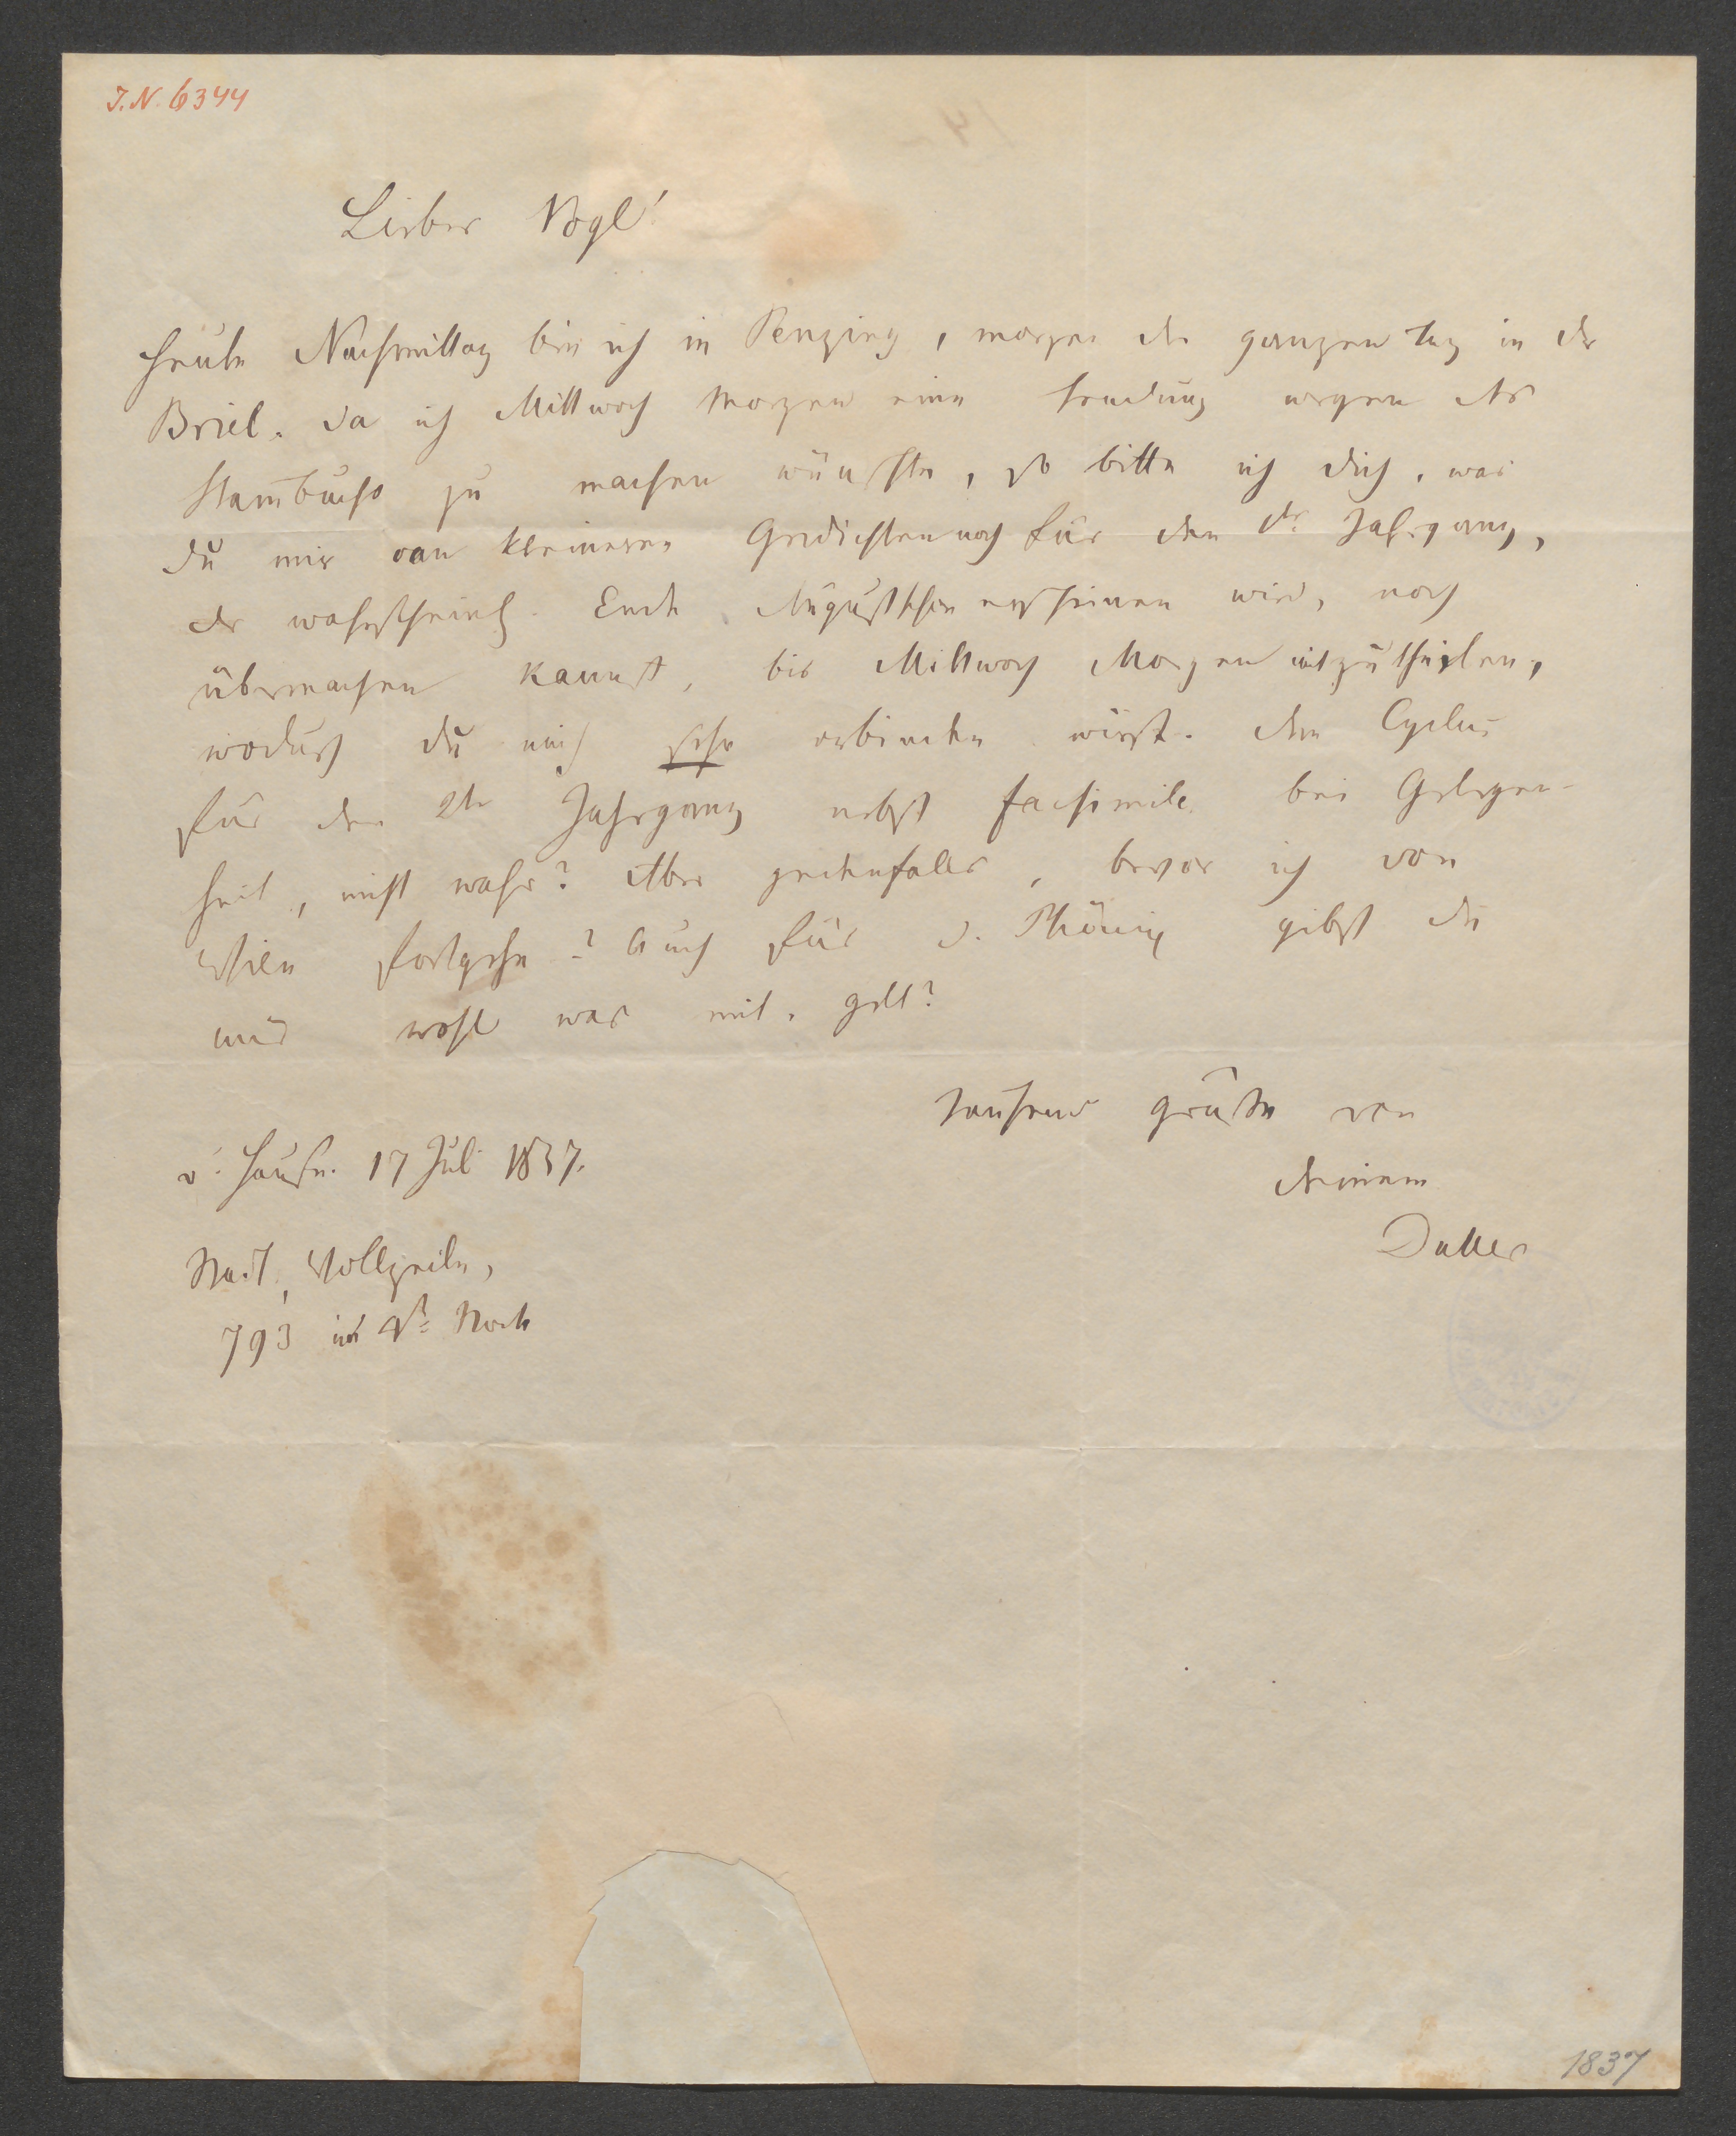 I.N. 6344
Lieber Vogl!
Heute Nachmittag bin ich in Penzing, morgen den ganzen Tag in der
Briel. Da ich Mittwoch Morgen eine Sendung wegen des
Stambuchs zu machen wünschte, so bitte ich dich, was
du mir von kleineren Gedichten noch für den Jahrgang,
der wahrscheinl. Ende Augusts erscheinen wird, noch
übermachen kannst, bis Mittwoch Morgen mitzutheilen,
wodurch du mich sehr verbinden wirst. Den Cyclus
für den 2ten Jahrgang nebst facsimile bei Gelegen-
heit, nicht wahr? Aber jedenfalls, bevor ich von
Wien fortgehe? Auch für d. Phönix gibst du
mir wohl was mit, gelt?
Tausend Grüße von
deinem
Duller
v. Hause. 17 Juli 1837.
Stadt, Wollzeile,
793 im 4t Stock
1837